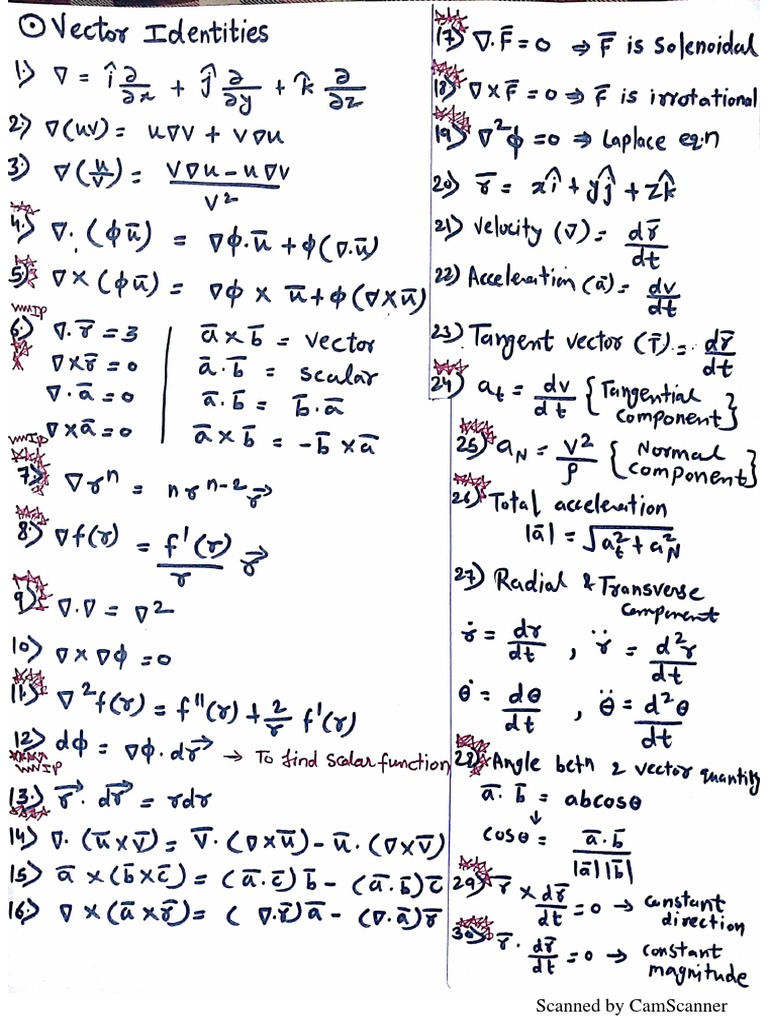 ⊙ Vector Identities
1.) ∇ = î ∂/∂x + ĵ ∂/∂y + k̂ ∂/∂z
2.) ∇(uv) = u∇v + v∇u
3.) ∇(u/v) = (v∇u - u∇v)/v²
4.) ∇·(ϕū) = ∇ϕ·ū + ϕ(∇·ū)
5.) ∇×(ϕū) = ∇ϕ × ū + ϕ(∇×ū)
VMIP
6.) ∇·r̄ = 3 | ā×b̄ = vector
∇×r̄ = 0 | ā·b̄ = scalar
∇·ā = 0 | ā·b̄ = b̄·ā
∇×ā = 0 | ā×b̄ = -b̄×ā
VMIP
7.) ∇rⁿ = n rⁿ⁻² r⃗
8.) ∇f(r) = f'(r)/r r⃗
9.) ∇·∇ = ∇²
10.) ∇×∇ϕ = 0
11.) ∇²f(r) = f''(r) + 2/r f'(r)
12.) dϕ = ∇ϕ·dr⃗ → To find scalar function
VMIP
13.) r⃗·dr⃗ = rdr
14.) ∇·(ū×v̄) = v̄·(∇×ū) - ū·(∇×v̄)
15.) ā×(b̄×c̄) = (ā·c̄)b̄ - (ā·b̄)c̄
16.) ∇×(ā×r̄) = (∇·r̄)ā - (∇·ā)r̄
17.) ∇·F̄ = 0 ⇒ F̄ is Solenoidal
18.) ∇×F̄ = 0 ⇒ F̄ is irrotational
19.) ∇²ϕ = 0 ⇒ Laplace eq.n
20.) r̄ = xî + yĵ + zk̂
21.) Velocity (v̄) = dr̄/dt
22.) Acceleration (ā) = dv/dt
23.) Tangent vector (T̄) = dr̄/dt
24.) aₜ = dv/dt {Tangential
component}
25.) a_N = v²/ρ {Normal
component}
26.) Total acceleration
|ā| = √(aₜ² + a_N²)
27.) Radial & Transverse
component
ṙ = dr/dt , r̈ = d²r/dt
θ̇ = dθ/dt , θ̈ = d²θ/dt
28.) Angle betn 2 vector quantity
ā·b̄ = abcosθ
↓
cosθ = ā·b̄/|ā||b̄|
29.) r̄ × dr̄/dt = 0 → constant
direction
30.) r̄· dr̄/dt = 0 → constant
magnitude
Scanned by CamScanner